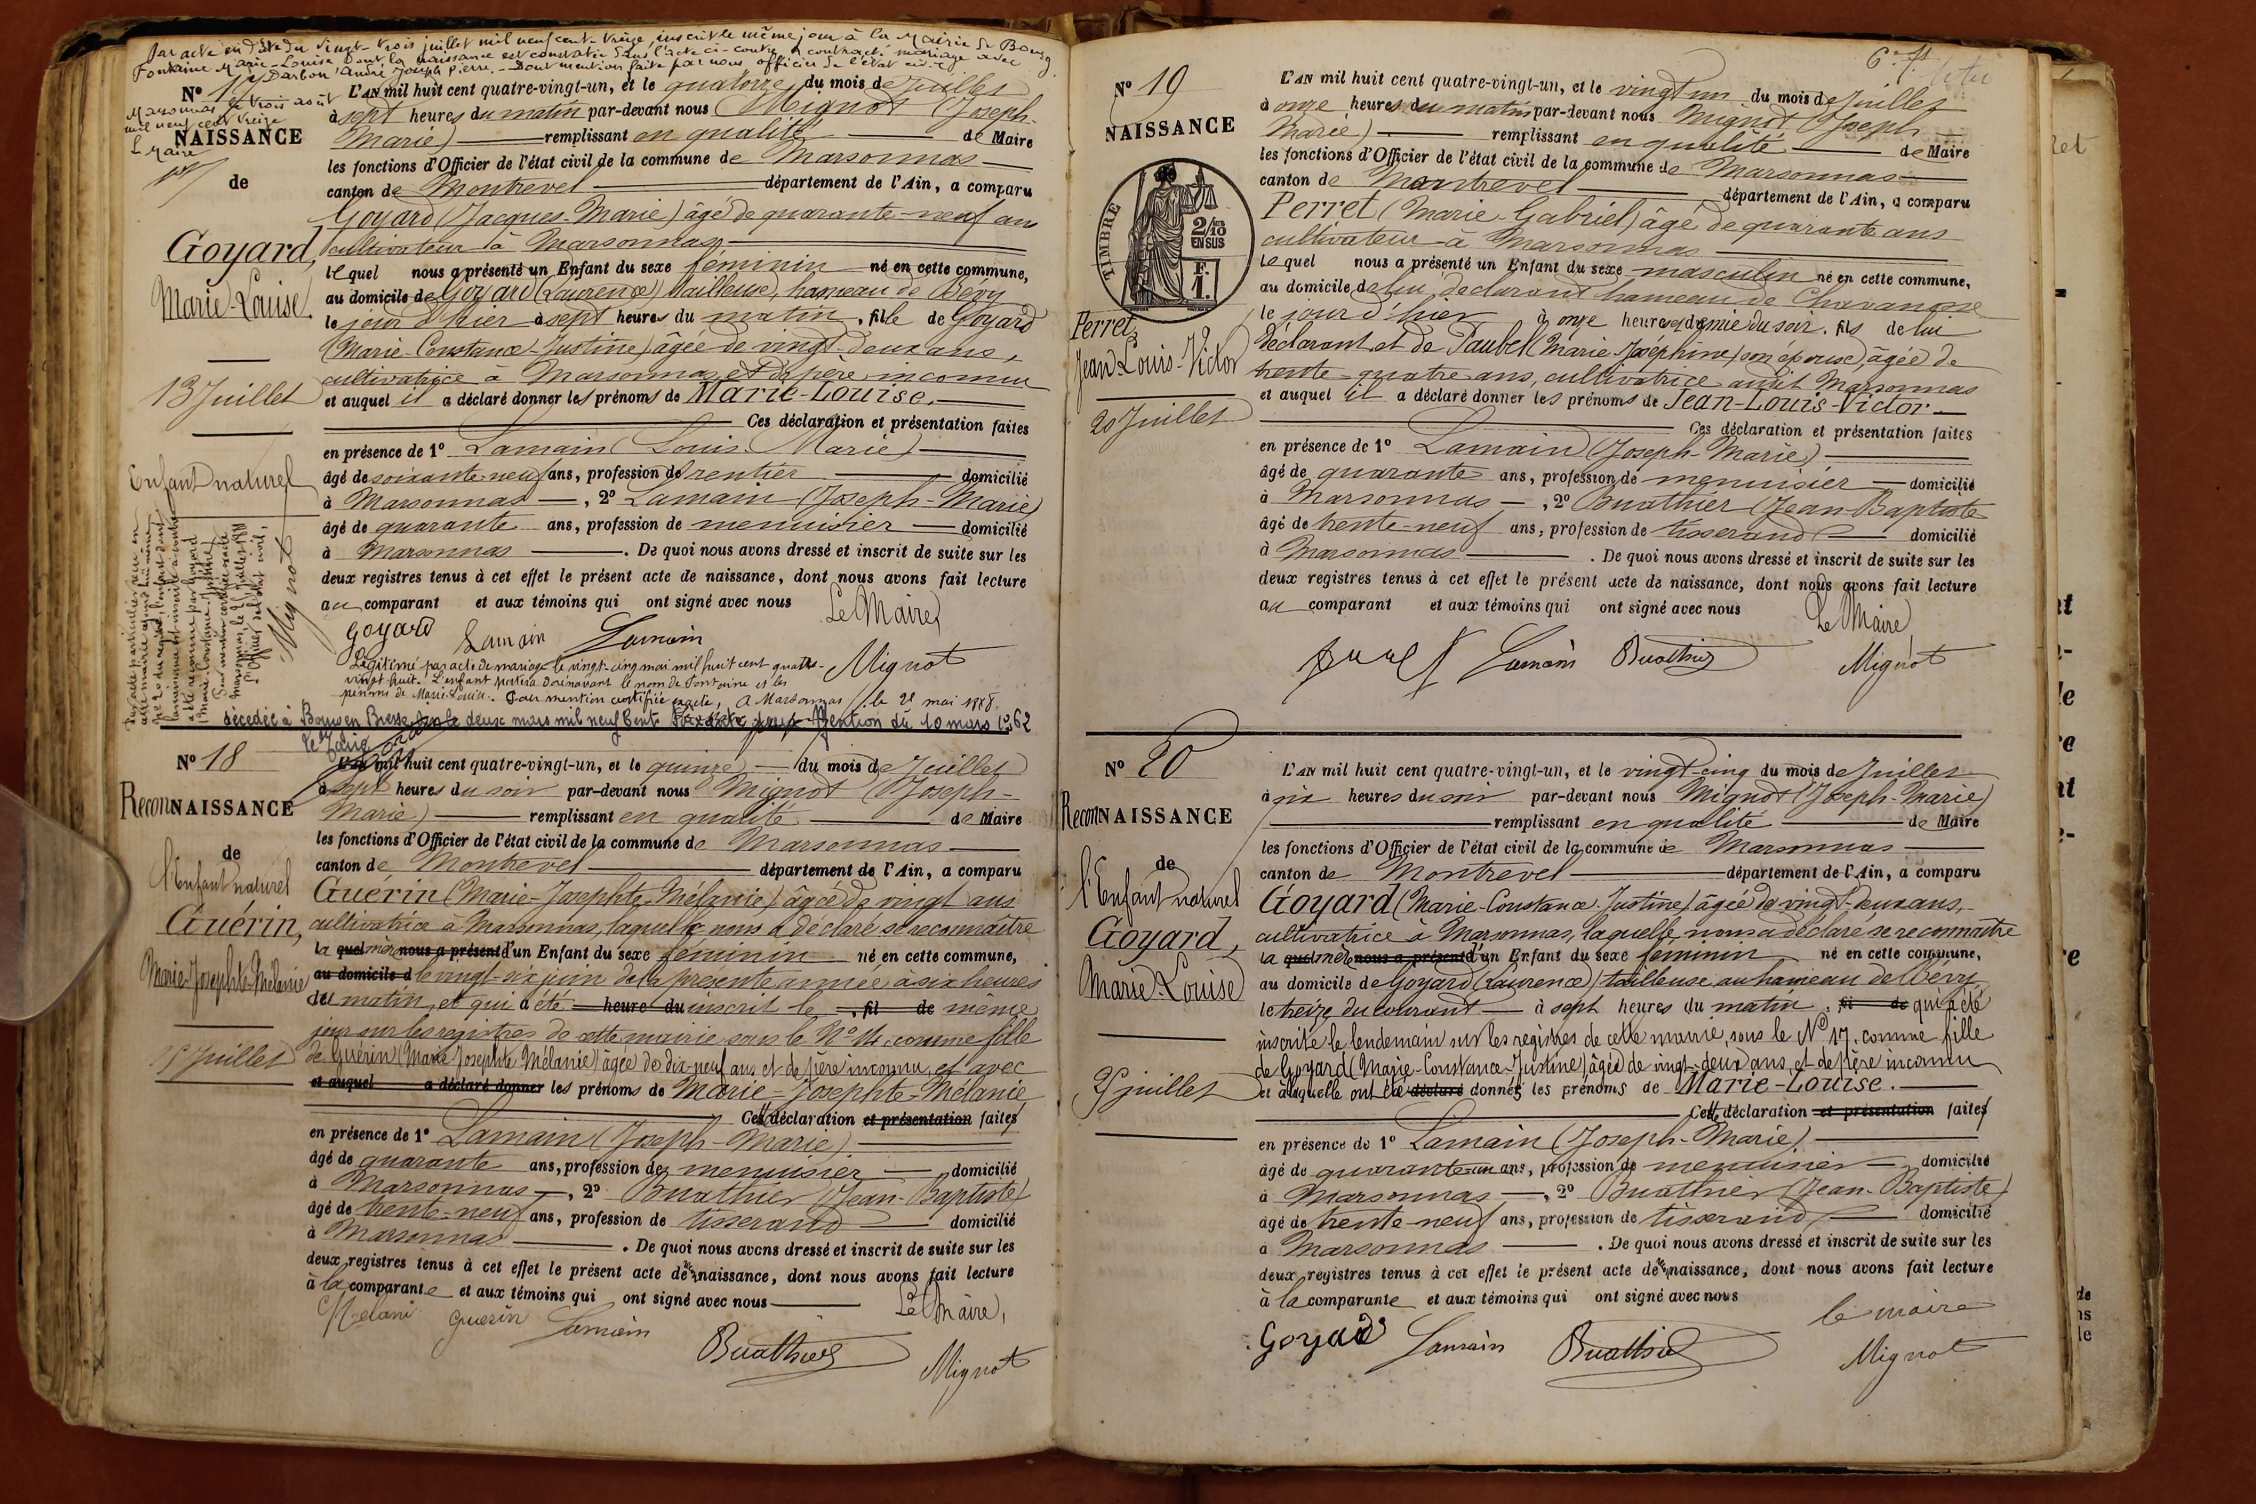 Par acte en date du vingt-trois juillet mil neuf cent-treize, inscrit le même jour à la Mairie de Bourg
Fontaine Marie-Louise dont la naissance est constatée dans l'acte ci-contre a contracté mariage avec
Darbon André Joseph Pierre. - Dont mention faite par nous officier de l'état civil
Marsonnas le trois août
mil neuf cent treize
Le Maire
No 17
NAISSANCE
de
Goyard,
Marie-Louise.
13 Juillet
Enfant naturel
Mignot
L'AN mil huit cent quatre-vingt-un, et le quatorze du mois de Juillet
à sept heures du matin par-devant nous Mignot (Joseph-
Marie) remplissant en qualité de Maire
les fonctions d'Officier de l'état civil de la commune de Marsonnas
canton de Montrevel département de l'Ain, a comparu
Goyard (Jacques-Marie) âgé de quarante-neuf ans
cultivateur à Marsonnas
lequel nous a présenté un Enfant du sexe féminin né en cette commune,
au domicile de Goyard (Laurence) tailleuse, hameau de Bévy
le jour d'hier à sept heures du matin, fille de Goyard
(Marie-Constance-Justine) âgée de vingt-deux ans,
cultivatrice à Marsonnas et de père inconnu
et auquel il a déclaré donner les prénoms de Marie-Louise.
Ces déclaration et présentation faites
en présence de 1° Lamain (Louis-Marie)
âgé de soixante-neuf ans, profession de rentier domicilié
à Marsonnas, 2° Lamain (Joseph-Marie)
âgé de quarante ans, profession de menuisier domicilié
à Marsonnas. De quoi nous avons dressé et inscrit de suite sur les
deux registres tenus à cet effet le présent acte de naissance, dont nous avons fait lecture
au comparant et aux témoins qui ont signé avec nous Le Maire
Goyard Lamain Lamain
Mignot
Légitimé par acte de mariage le vingt-cinq mai mil huit cent quatre-
vingt huit. L'enfant portera dorénavant le nom de Fontaine et les
prénoms de Marie-Louise. Pour mention certifiée exacte, A Marsonnas, le 25 mai 1888.
décédée à Bourg en Bresse le deux mars mil neuf cent Mention du 10 mars 1962
No 18
ReconNAISSANCE
de
l'Enfant naturel
Guérin,
Marie-Josephte-Mélanie
15 Juillet
L'AN mil huit cent quatre-vingt-un, et le quinze du mois de Juillet
à sept heures du soir par-devant nous Mignot (Joseph-
Marie) remplissant en qualité de Maire
les fonctions d'Officier de l'état civil de la commune de Marsonnas
canton de Montrevel département de l'Ain, a comparu
Guérin (Marie-Josephte-Mélanie) âgée de vingt ans
cultivatrice à Marsonnas, laquelle nous a déclaré se reconnaître
la quel mère nous a présenté d'un Enfant du sexe féminin né en cette commune,
au domicile d le vingt-six juin de la présente année à six heures
du matin, et qui a été heure du inscrit le, fil de même
jour sur les registres de cette mairie sous le No 14, comme fille
de Guérin (Marie Josephte Mélanie) âgée de dix-neuf ans et de père inconnu, et avec
et auquel a déclaré donner les prénoms de Marie-Josephte-Mélanie
Cette déclaration et présentation faites
en présence de 1° Lamain (Joseph-Marie)
âgé de quarante ans, profession de menuisier domicilié
à Marsonnas, 2° Buathier (Jean-Baptiste)
âgé de trente-neuf ans, profession de tisserand domicilié
à Marsonnas. De quoi nous avons dressé et inscrit de suite sur les
deux registres tenus à cet effet le présent acte de reconnaissance, dont nous avons fait lecture
à la comparante et aux témoins qui ont signé avec nous Le Maire,
Melani Guerin Lamain Buathier Mignot
6e ft
No 19
NAISSANCE
TIMBRE
2/10
EN SUS
F.
1.
Perret,
Jean-Louis-Victor
20 Juillet
L'AN mil huit cent quatre-vingt-un, et le vingt un du mois de Juillet
à onze heures du matin par-devant nous Mignot (Joseph-
Marie) remplissant en qualité de Maire
les fonctions d'Officier de l'état civil de la commune de Marsonnas
canton de Montrevel département de l'Ain, a comparu
Perret (Marie-Gabriel) âgé de quarante ans
cultivateur à Marsonnas
lequel nous a présenté un Enfant du sexe masculin né en cette commune,
au domicile de lui déclarant hameau de Chavannosse
le jour d'hier à onze heures et demie du soir, fils de lui
déclarant et de Paubel (Marie-Joséphine) son épouse, âgée de
trente-quatre ans, cultivatrice audit Marsonnas
et auquel il a déclaré donner les prénoms de Jean-Louis-Victor
Ces déclaration et présentation faites
en présence de 1° Lamain (Joseph-Marie)
âgé de quarante ans, profession de menuisier domicilié
à Marsonnas, 2° Buathier (Jean-Baptiste
âgé de trente-neuf ans, profession de tisserand domicilié
à Marsonnas. De quoi nous avons dressé et inscrit de suite sur les
deux registres tenus à cet effet le présent acte de naissance, dont nous avons fait lecture
au comparant et aux témoins qui ont signé avec nous Le Maire
Lamain Buathier Mignot
No 20
ReconNAISSANCE
de
l'Enfant naturel
Goyard,
Marie-Louise
25 juillet
L'AN mil huit cent quatre-vingt-un, et le vingt-cinq du mois de Juillet
à six heures du soir par-devant nous Mignot (Joseph-Marie)
remplissant en qualité de Maire
les fonctions d'Officier de l'état civil de la commune de Marsonnas
canton de Montrevel département de l'Ain, a comparu
Goyard (Marie-Constance-Justine) âgée de vingt-deux ans,
cultivatrice à Marsonnas, laquelle nous a déclaré se reconnaître
la quel mère nous a présenté d'un Enfant du sexe féminin né en cette commune,
au domicile de Goyard (Laurence) tailleuse au hameau de Bévy
le treize du courant à sept heures du matin, fil de qui a été
inscrite le lendemain sur les registres de cette mairie, sous le No 17, comme fille
de Goyard (Marie-Constance-Justine) âgée de vingt-deux ans et de père inconnu
et à laquelle ont été déclaré donnés les prénoms de Marie-Louise.
Cette déclaration et présentation faites
en présence de 1° Lamain (Joseph-Marie)
âgé de quarante-un ans, profession de menuisier domicilié
à Marsonnas, 2° Buathier (Jean-Baptiste)
âgé de trente-neuf ans, profession de tisserand domicilié
à Marsonnas. De quoi nous avons dressé et inscrit de suite sur les
deux registres tenus à cet effet le présent acte de reconnaissance, dont nous avons fait lecture
à la comparante et aux témoins qui ont signé avec nous
le maire
Goyard Lamain Buathier Mignot